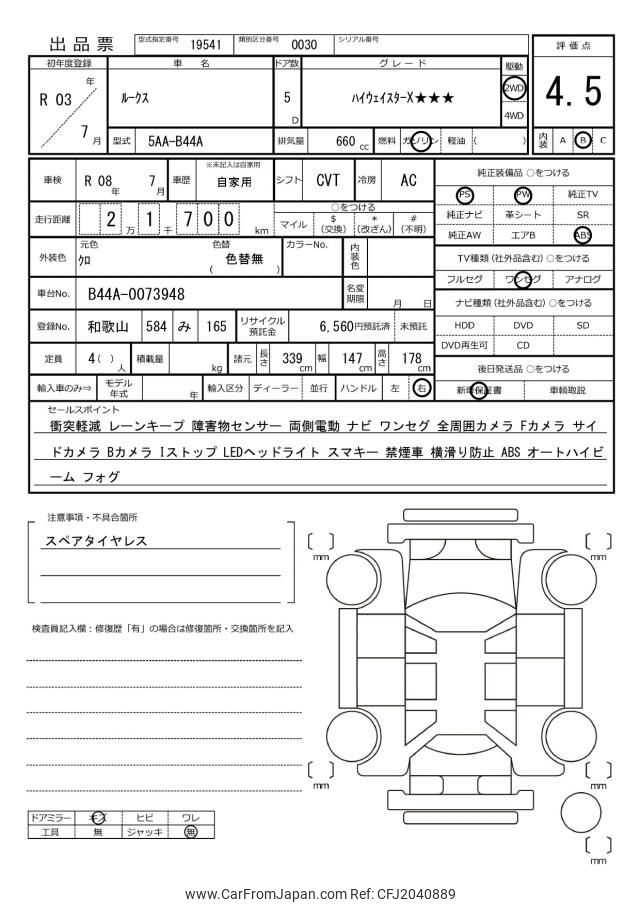 出品票 型式指定番号 19541 類別区分番号 0030 シリアル番号
評価点
初年度登録 車名 ドア数 グレード 駆動
R 03 年 7 月 ルークス 5 D ハイウェイスターX★★★ 2WD 4WD
4.5
型式 5AA-B44A 排気量 660 cc 燃料 ガソリン 軽油 ( ) 内装 A B C
車検 R 08 年 7 月 車歴 ※未記入は自家用 自家用 シフト CVT 冷房 AC
純正装備品 ○をつける
PS PW 純正TV
走行距離 2 万 1 千 7 0 0 km
○をつける
マイル $ (交換) * (改ざん) # (不明)
純正ナビ 革シート SR
純正AW エアB ABS
外装色 元色 クロ 色替 ( 色替無 ) カラーNo. 内装色
TV種類 (社外品含む) ○をつける
フルセグ ワンセグ アナログ
車台No. B44A-0073948 名変期限 月 日
ナビ種類 (社外品含む) ○をつける
登録No. 和歌山 584 み 165 リサイクル預託金 6,560円預託済 未預託
HDD DVD SD
DVD再生可 CD
定員 4 ( ) 人 積載量 kg 諸元 長さ 339 cm 幅 147 cm 高さ 178 cm
後日発送品 ○をつける
輸入車のみ⇒ モデル年式 年 輸入区分 ディーラー 並行 ハンドル 左 右
新車保証書 車輌取説
セールスポイント
衝突軽減 レーンキープ 障害物センサー 両側電動 ナビ ワンセグ 全周囲カメラ Fカメラ サイ
ドカメラ Bカメラ Iストップ LEDヘッドライト スマキー 禁煙車 横滑り防止 ABS オートハイビ
ーム フォグ
注意事項・不具合箇所
スペアタイヤレス
検査員記入欄：修復歴「有」の場合は修復箇所・交換箇所を記入
mm
mm
mm
mm
mm
ドアミラー キズ ヒビ ワレ
工具 無 ジャッキ 無
www.CarFromJapan.com Ref: CFJ2040889